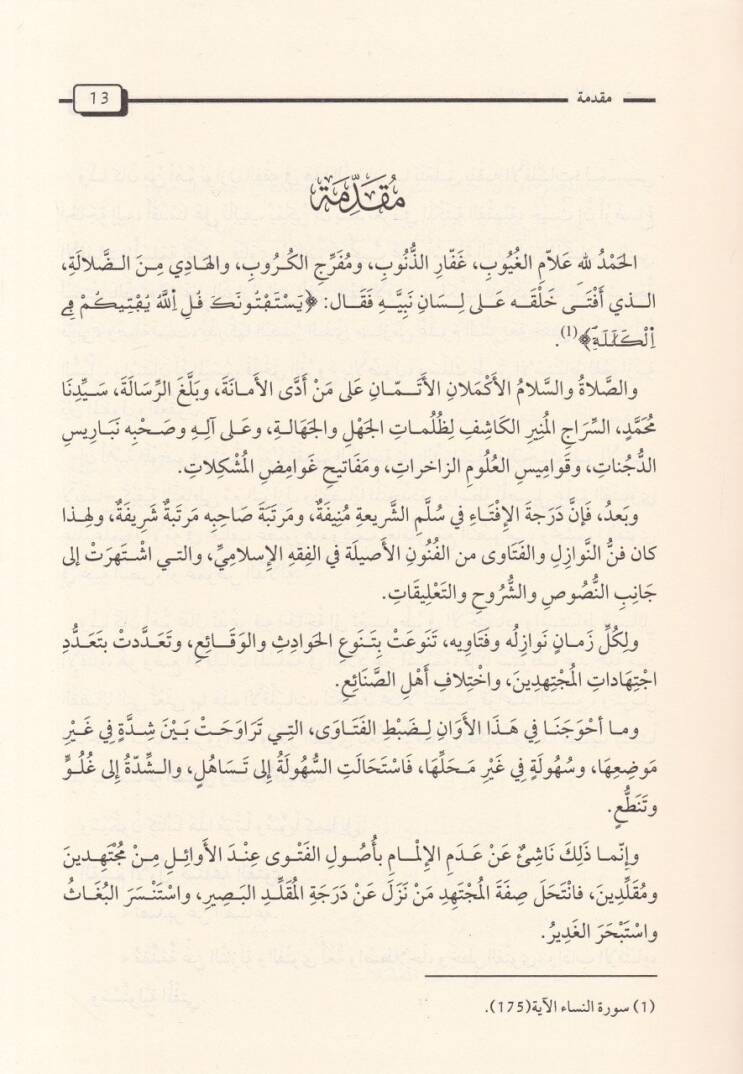 مقدمة 13
مُقَدِّمَة
الحَمْدُ للهِ عَلاَّمِ الغُيُوبِ، غَفّارِ الذُّنُوبِ، ومُفَرِّجِ الكُرُوبِ، والهَادِي مِنَ الضَّلالَةِ،
الذي أَفْتَى خَلْقَه عَلى لِسَانِ نَبِيَّهِ فَقَال: ﴿يَسْتَفْتُونَكَ قُلِ اِللَّهُ يُفْتِيكُمْ فِے
اِلْكَلَٰلَةِ﴾(1).
والصَّلاةُ والسَّلامُ الأَكْمَلانِ الأَتَـمَّـانِ عَلى مَنْ أَدَّى الأَمانَةَ، وبَلَّغَ الرِّسالَةَ، سَيِّدِنَا
مُحَمَّدٍ، السِّرَاجِ المُنِيرِ الكَاشِفِ لِظُلُمـاتِ الجَهْلِ والجَهَالـةِ، وعَـلى آلـهِ وصَـحْبِه نَبَـارِيسِ
الدُّجُنـاتِ، وقَوامِيسِ العُلُومِ الزاخراتِ، ومَفَاتيحِ غَوامِضِ المُشْكِلاتِ.
وبَعدُ، فَإِنَّ دَرَجَةَ الإِفْتَـاءِ في سُلَّمِ الشَّريعةِ مُنِيفَةٌ، ومَرتَبَةَ صَاحِبِه مَرتَبَةٌ شَرِيفَةٌ، ولهِـذا
كان فنُّ النَّوازِلِ والفَتَاوى من الفُنُونِ الأَصيلَة في الفِقهِ الإِسلامِيِّ، والتـي اشْـتَهَرَتْ إلى
جَانِبِ النُّصُوصِ والشُّرُوحِ والتَعْلِيقَاتِ.
ولِكُلِّ زَمـانٍ نَوازِلُه وفَتَاوِيه، تَنوعَتْ بِتَنوعِ الحَوادِثِ والوَقَـائِـعِ، وتَعَدَّدتْ بتَعَدُّدِ
اجْتِهَاداتِ المُجْتهِدِينَ، واخْتِلافِ أَهْلِ الصَّنَائِعِ.
ومـا أحْوَجَنَـا في هَـذَا الأَوَانِ لِضَبْطِ الفَتَـاوَى، التـي تَرَاوَحَـتْ بَـيْنَ شِدَّةٍ فِي غَـيْرِ
مَوضِعِهَا، وسُهُولَةٍ فِي غَيْرِ مَحَلِّهَا، فَاسْتَحَالَتِ السُّهُولَةُ إلى تَسَاهُلٍ، والشِّدَّةُ إلى غُلُـوٍّ
وتَنَطُّعٍ.
وإِنَّمـا ذَلِكَ نَاشِئٌ عَنْ عَدَمِ الإِلْمـامِ بأُصُولِ الفَتْوَى عِنْدَ الأَوائِلِ مِنْ مُجْتَهِدينَ
ومُقَلِّدِينَ، فانْتَحَلَ صِفَةَ المُجْتهِدِ مَنْ نَزَلَ عَنْ دَرَجَةِ المُقَلِّدِ البَصيرِ، واسْتَنْسَرَ البُغَاثُ
واسْتَبْحَرَ الغَدِيرُ.
(1) سورة النساء الآية(175).